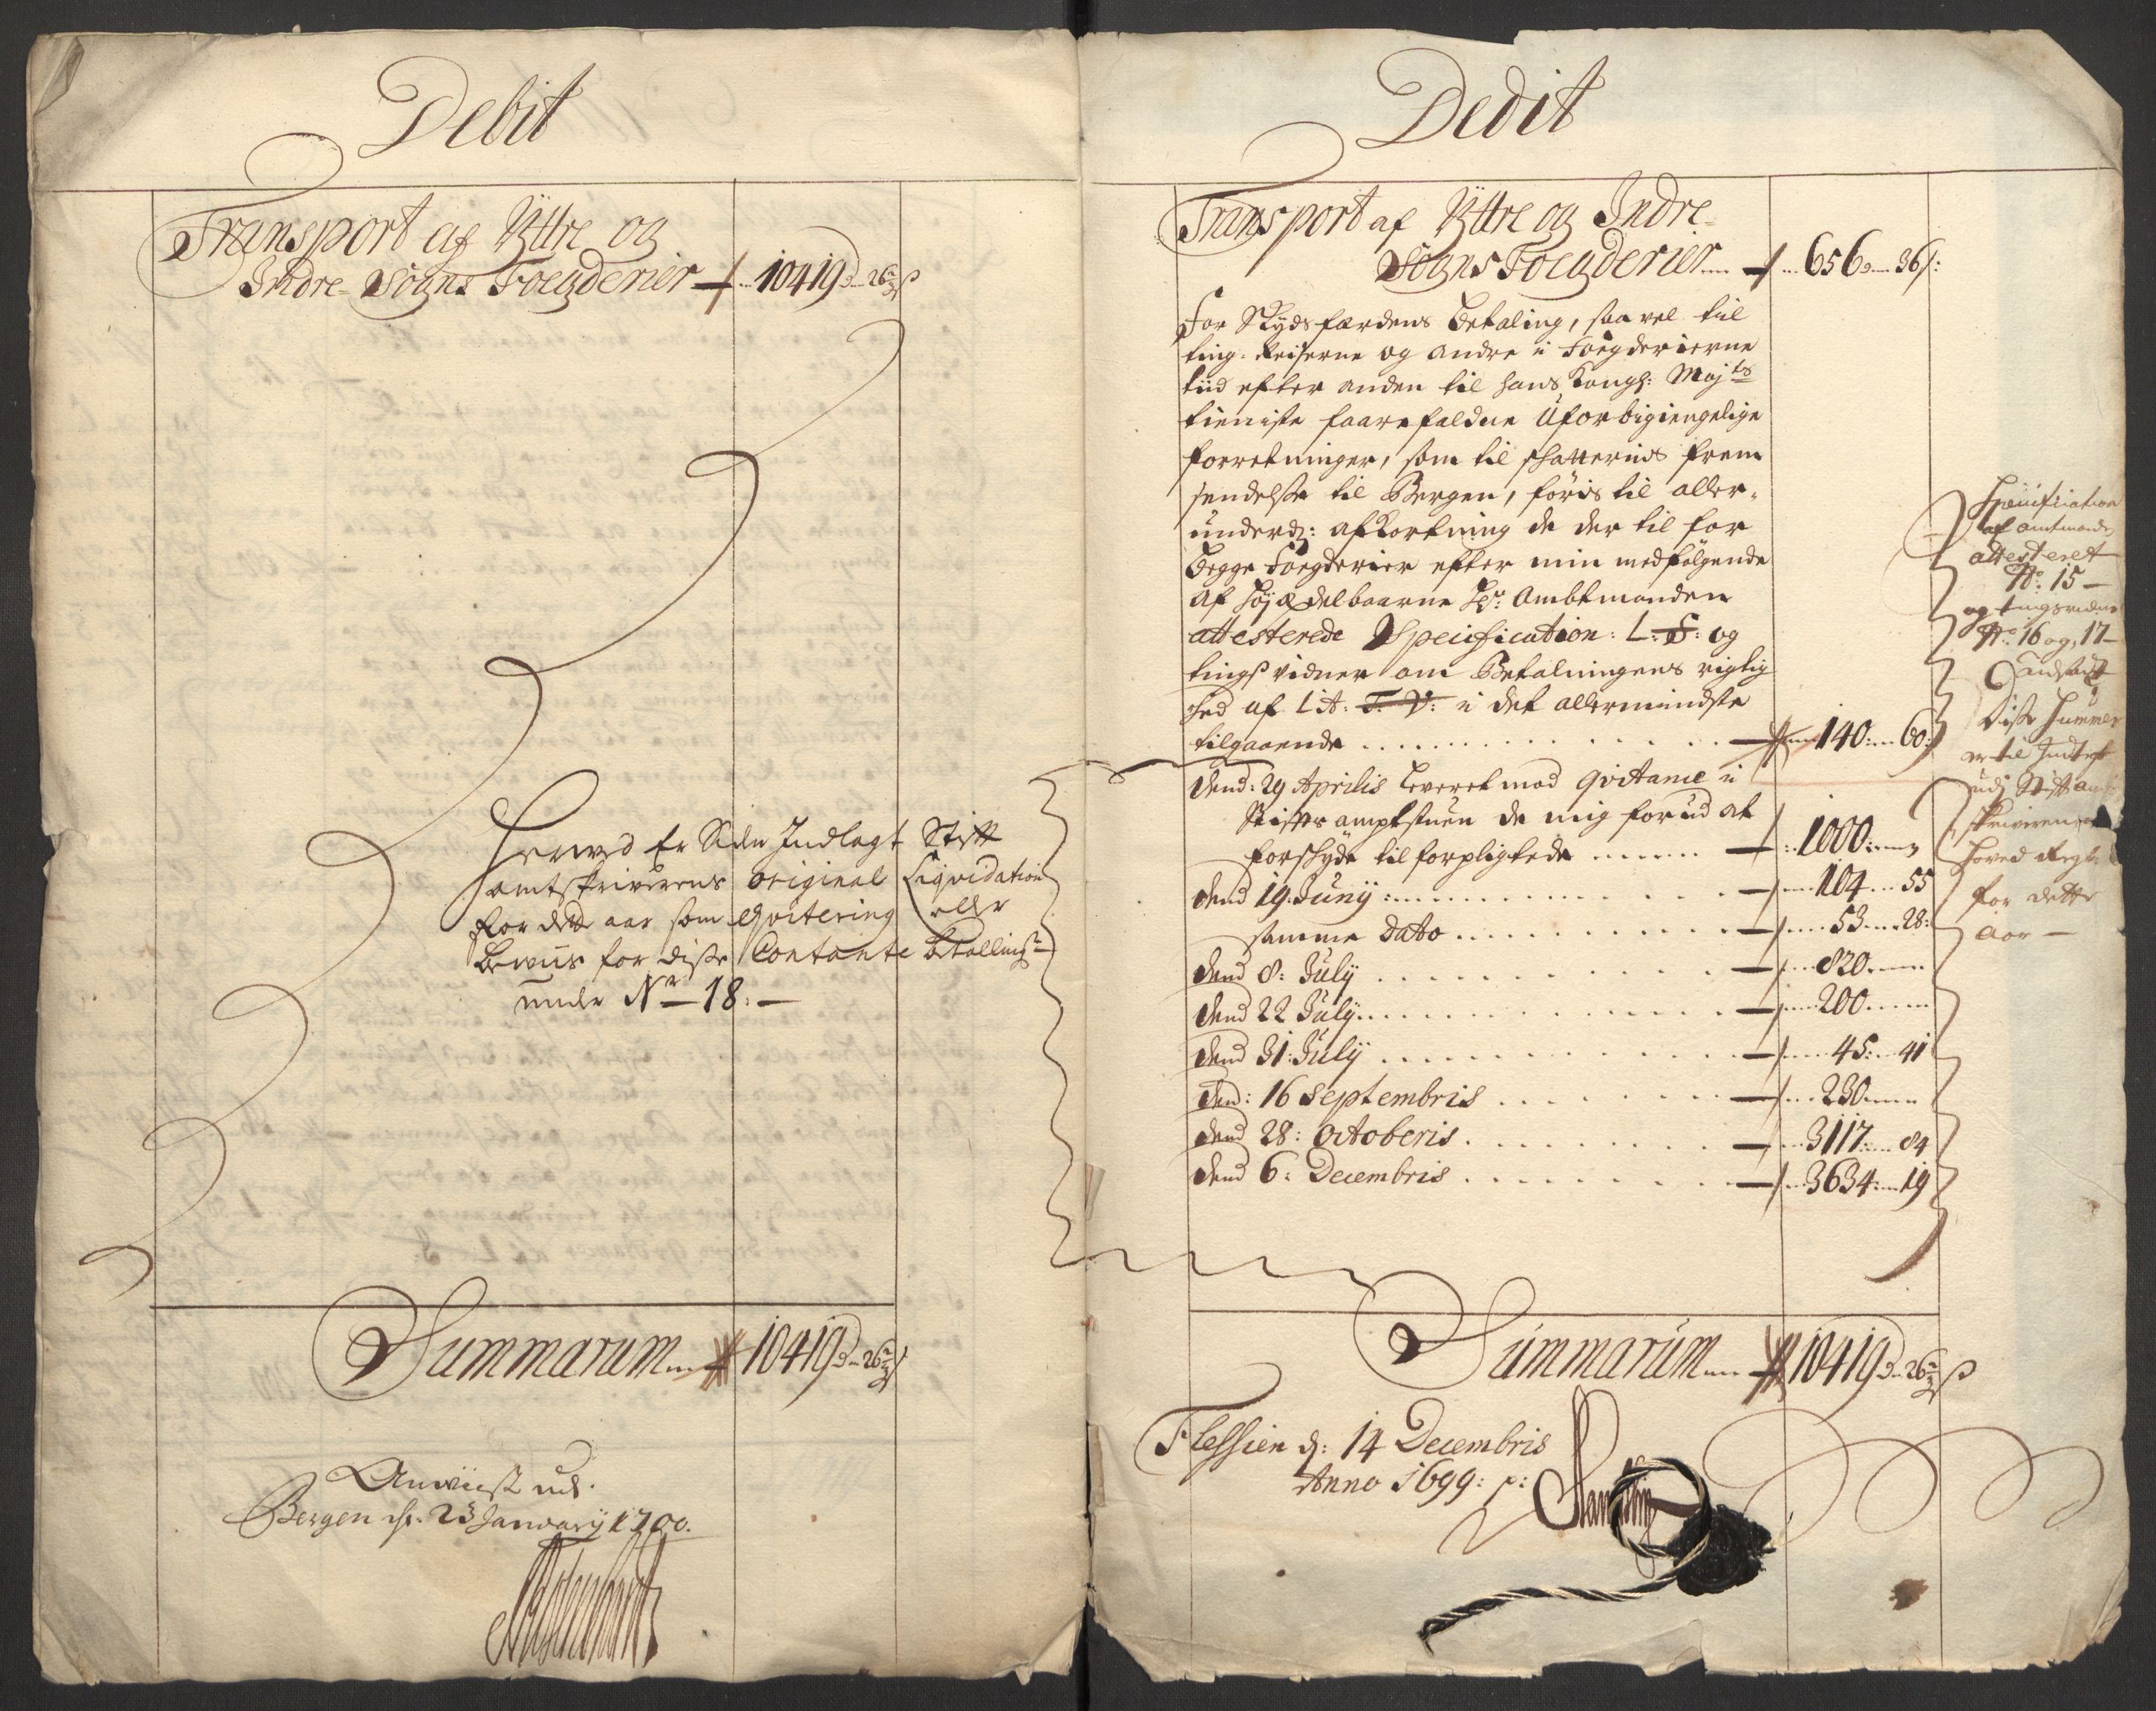 Debit
Transport af Ÿttre og
Indre Sogns Foegderier 10419 26
Herved Er Siden Indlagt Stift
amtskriverens Original Liqvidation
for dette aar som Qvitering eller
Beviis for disse Contante
under Nr 18:
Summarum 10419 26
Bergen d. 23 January 1700.
Dedit
Transport af Ÿttre og Indre
Sogns Foegderier 656 36
For Skydsfærdens Betaling, saa vel til
ting Reiserne og andre i Foegderierne
tiid efter anden til hans Kongl: Majts
tieniste faarefaldne Uforbigiengelige
forretninger, som til schatternis frem
sendelse til Bergen, föris til aller-
underd: afkortning de der til for
Begge Foegderier efter min medfölgende
af Höjædelbaarne Hr: Ambtmanden
attesterede Specification: L: S: og
tingsvidner om Betalningens rigtig
hed af Lit: T: V: i det allermindste
tilgaaende 140: 60:
Dend: 29 Aprilis Leveret mod qvitance i
Stiftsamptstuen de mig forud at
forskyde til forpligtede 1000
dend 19. Junÿ 104 55
samme dato 53 28:
dend 8: Julÿ 820
dend 22 Julÿ 200
dend 31: Julÿ 45: 41
dend: 16 Septembris 230
dend 28: Octoberis 3117 84
dend 6: Decembris 3634 19
Specification
af amtmand
attesteret
No: 15
og tingsvidne
No: 16 og 17
Disse Summer
er til Indtegt
udj Stift amt
skriverens
hoved Regts:
for dette
Aar
Summarum 10419 26
d: 14 Decembris
Anno 1699: